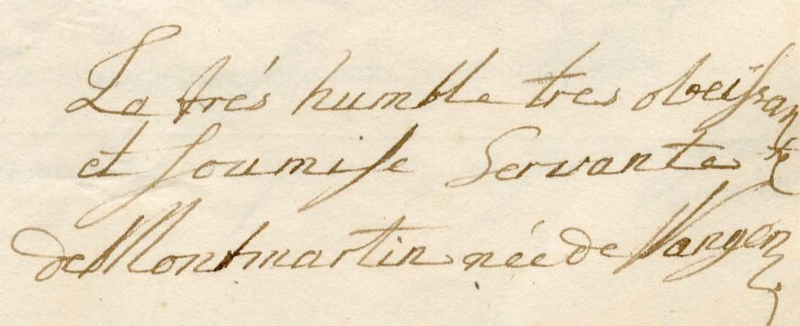 La trés humble tres obeissante
et soumise Servante
de Montmartin née de Wangen